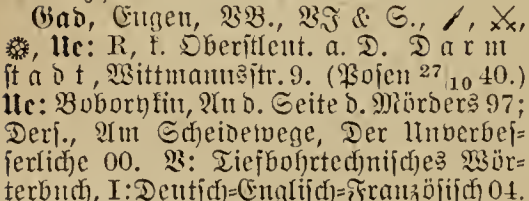 Gad, Eugen, BB., BJ & S., /, ⚔,
❁, Ue: R, k. Oberstleut. a. D. Darm
stadt, Wittmannsstr. 9. (Posen 27/10 40.)
Ue: Boborykin, An d. Seite d. Mörders 97;
Ders., Am Scheidewege, Der Unverbes-
serliche 00. V: Tiefbohrtechnisches Wör-
terbuch, I: Deutsch-Englisch-Französisch 04.